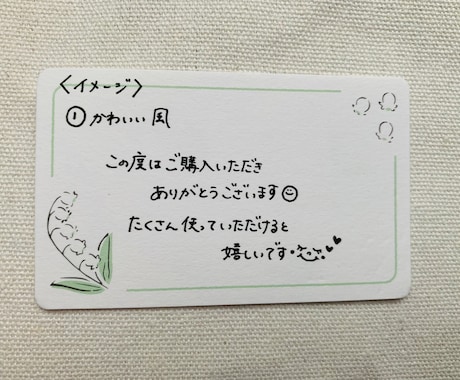 〈イメージ〉
①かわいい風
この度はご購入いただき
ありがとうございます☺
たくさん使っていただけると
嬉しいです